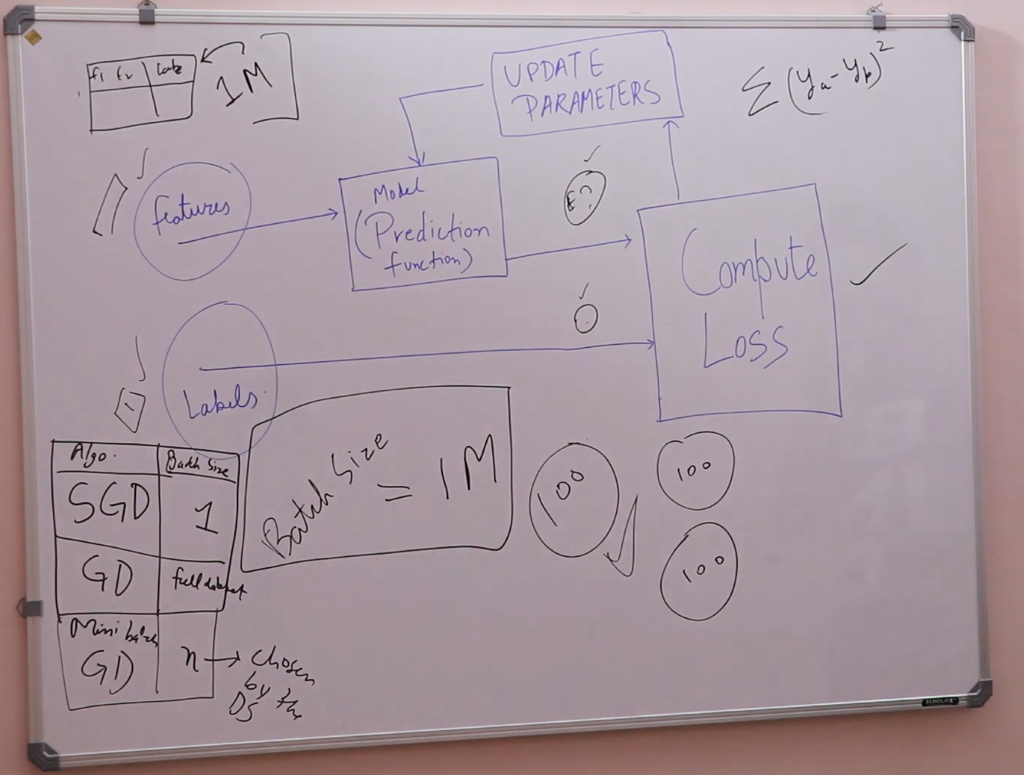 f1 f2
1M
UPDATE
PARAMETERS
Σ(ya-yp)²
features
Model
(Prediction
function)
Compute
Loss
Labels
Algo.
Batch Size
SGD
1
GD
full dataset
Mini batch
GD
n → chosen
by the
DS
Batch Size
= 1M
100
100
100